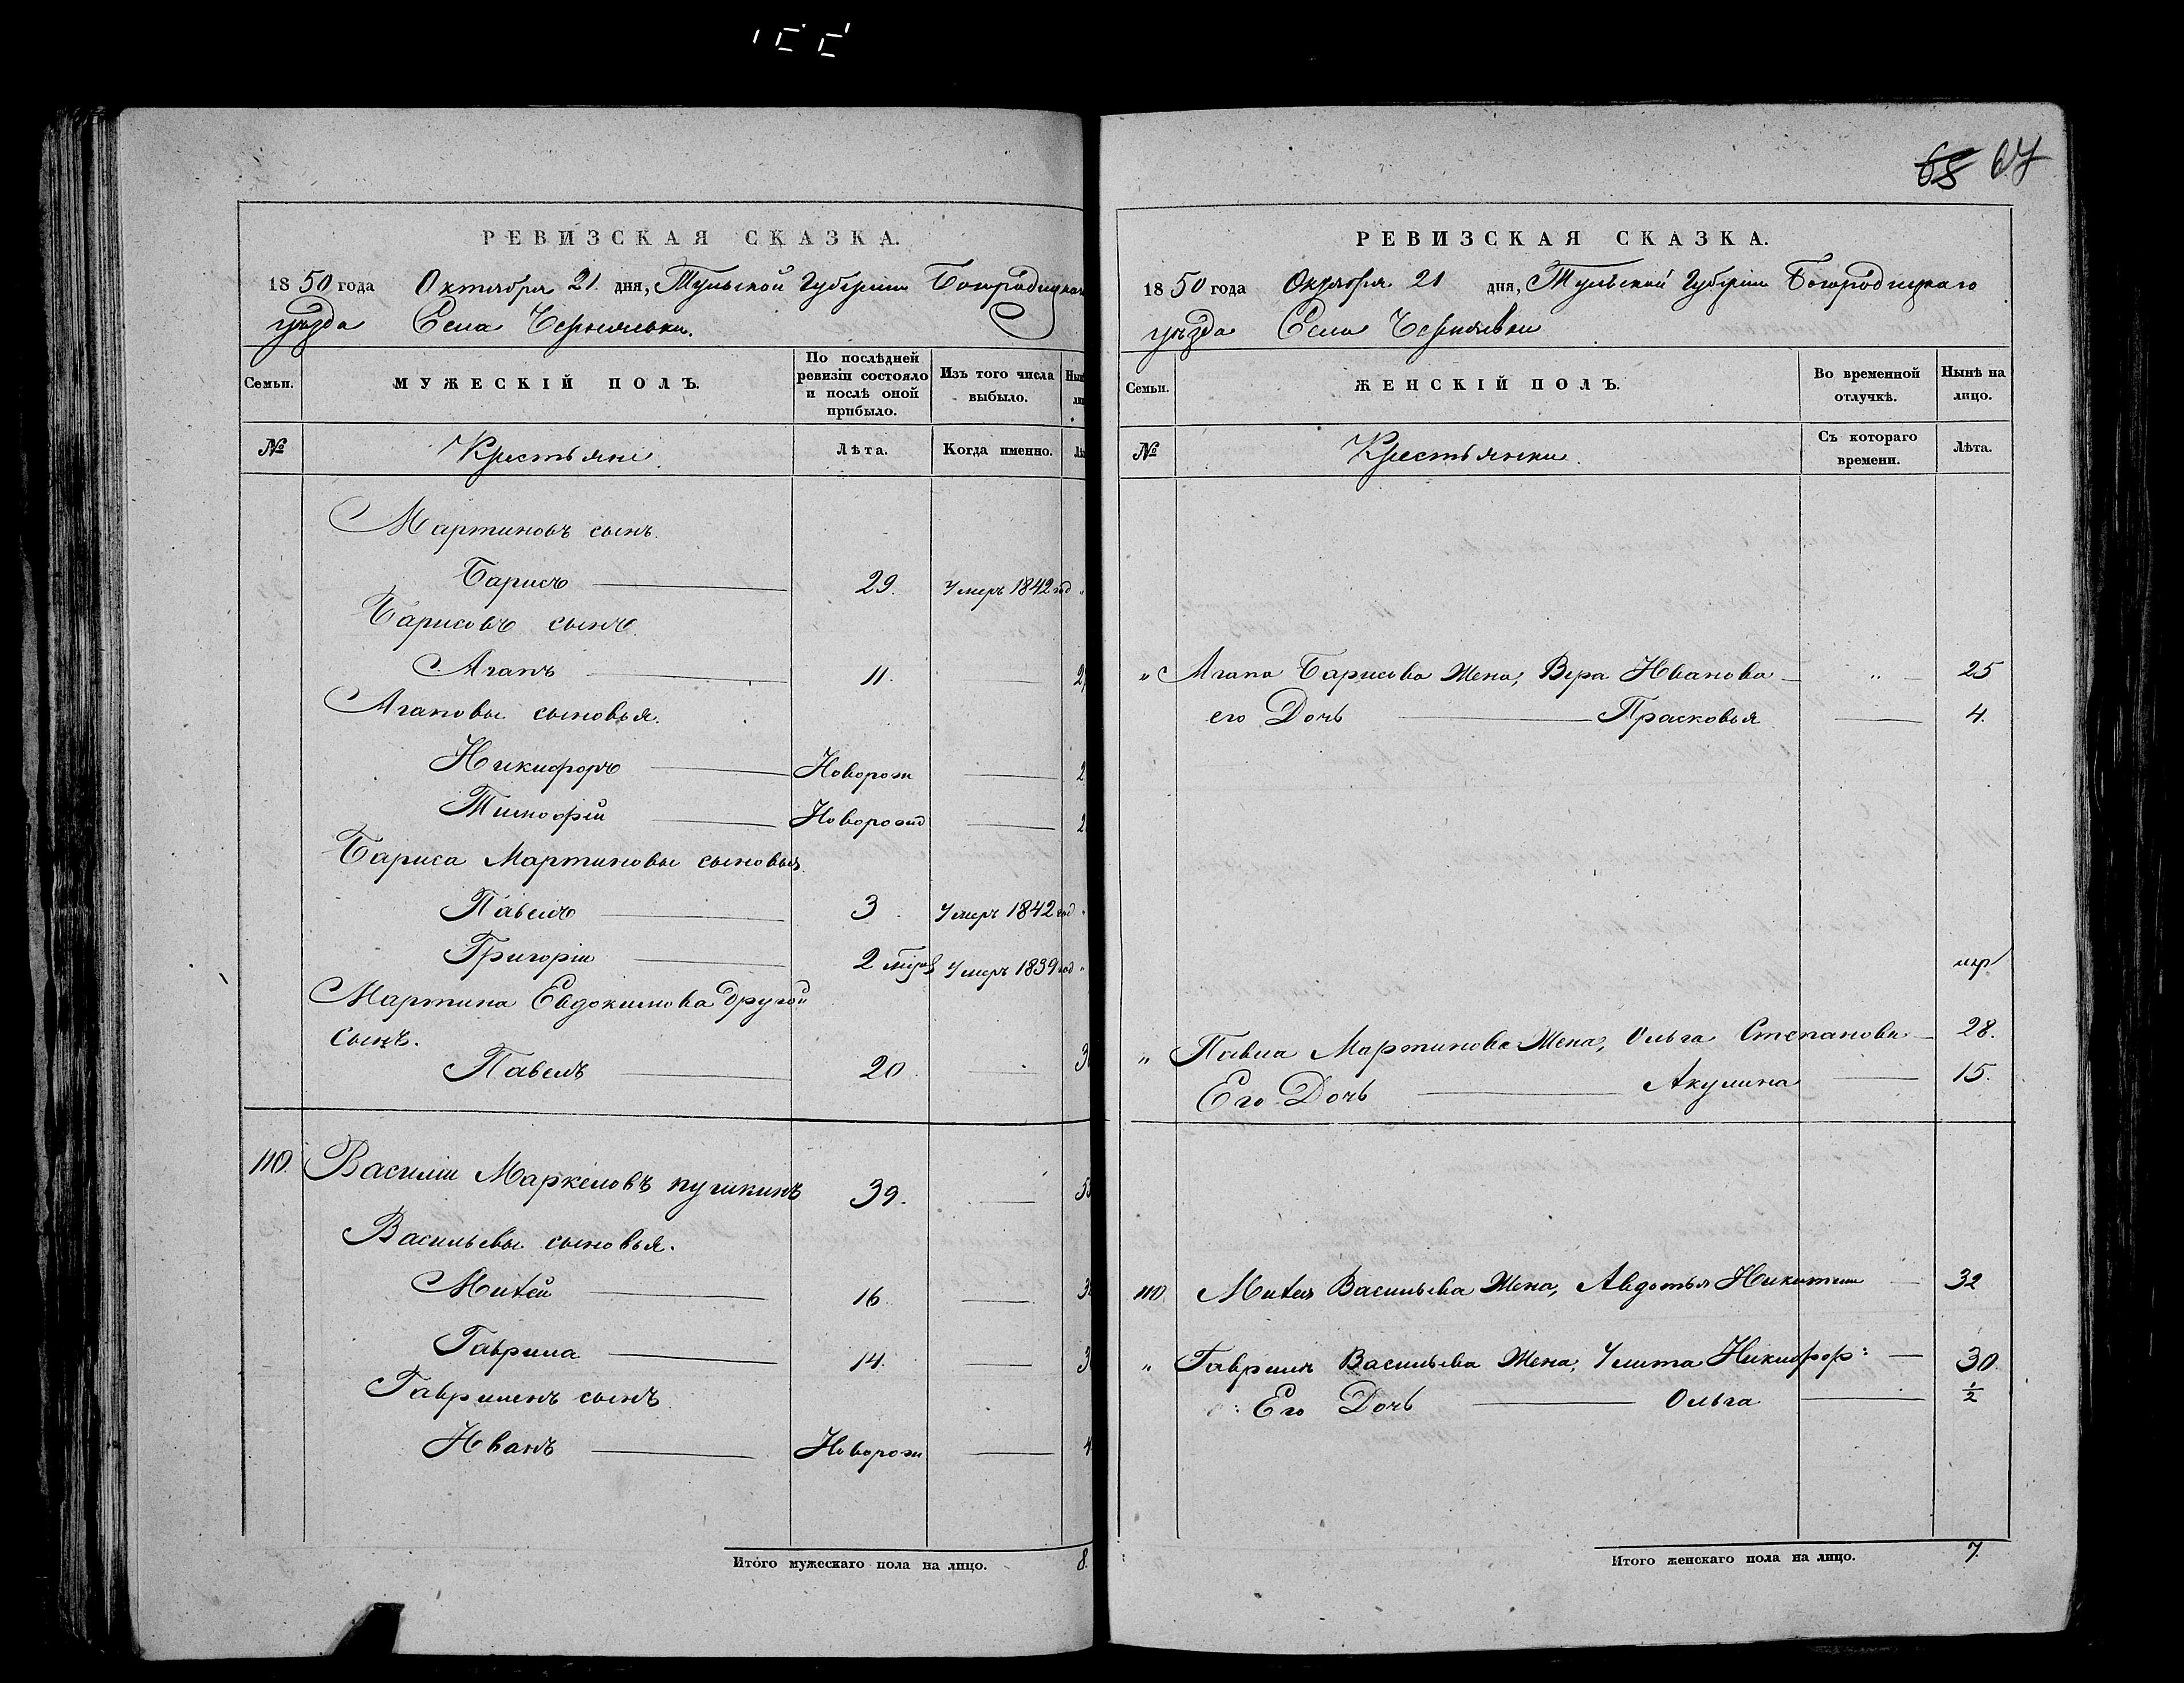 68 67
РЕВИЗСКАЯ СКАЗКА.
1850 года Октября 21 дня, Тульской Губерніи Богородицкаго
уѣзда Села Чернявки.
Семьи.
МУЖЕСКІЙ ПОЛЪ.
По послѣдней ревизіи состояло и послѣ оной прибыло.
Изъ того числа выбыло.
№
Крестьяне.
Лѣта.
Когда именно.
Мартиновъ сынъ.
Барисъ 29. Умеръ 1842 год
Барисовъ сынъ.
Агапъ 11.
Агаповы сыновья.
Никифоръ Новорож
Тимофей Новорожд
Бариса Мартиновы сыновья.
Павелъ 3. Умеръ 1842 год
Григорій 2 Умеръ 1839 год
Мартина Евдокимова другой
сынъ.
Павелъ 20
110. Василій Маркеловъ пушкинъ 39.
Васильевы сыновья.
Митей 16
Гаврила 14.
Гавриленъ сынъ
Иванъ Новорож
Итого мужескаго пола на лицо. 8.
РЕВИЗСКАЯ СКАЗКА.
1850 года Октября 21 дня, Тульской Губерніи Богородицкаго
уѣзда Села Чернявки
Семьи.
ЖЕНСКІЙ ПОЛЪ.
Во временной отлучкѣ.
Нынѣ на лицо.
№
Крестьянки.
Съ котораго времени.
Лѣта.
" Агапа Барисова Жена, Вера Иванова " 25
его Дочь Прасковья 4.
" Павла Мартинова Жена, Ольга Степанова 28.
Его Дочь Акулина 15.
110. Митея Васильева Жена, Авдотья Никитин 32
" Гаврилы Васильева Жена, Улита Никифор: 30.
Его Дочь Ольга ½
Итого женскаго пола на лицо. 7.